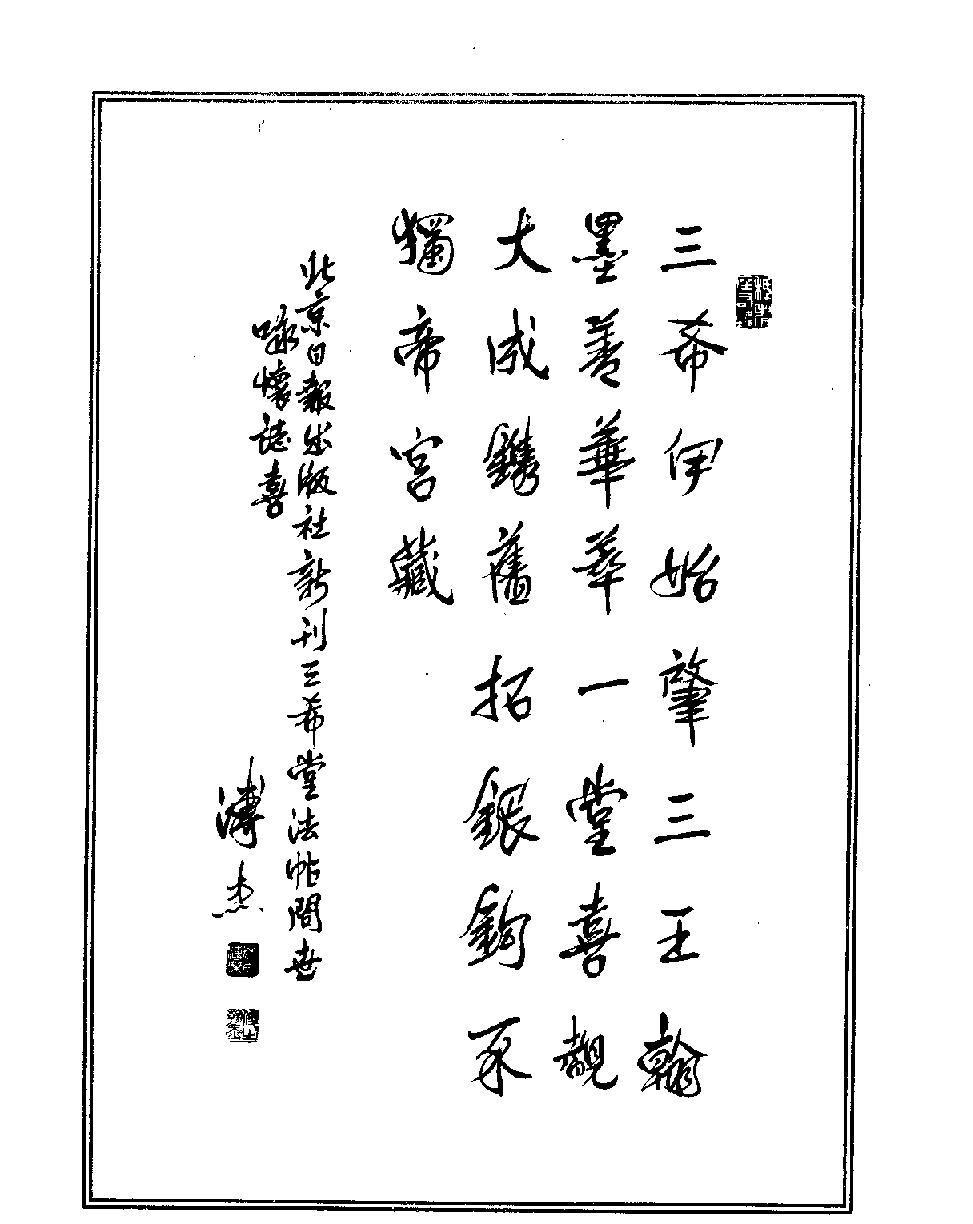 三希伊始肇三王翰
墨菁華萃一堂喜覩
大成鐫舊拓銀鉤不
獨帝宮藏
北京日報出版社新刊三希堂法帖問世
咏懷誌喜
溥杰